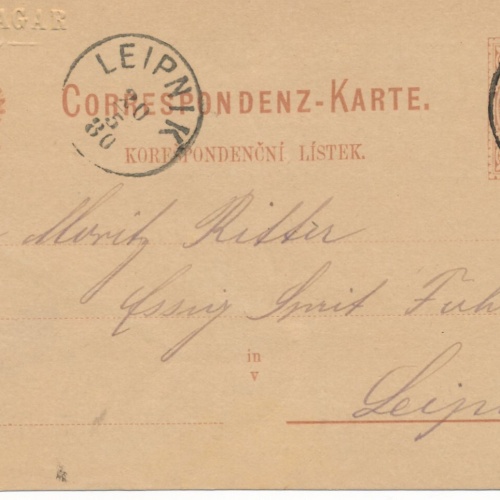 AGAR
LEIPNIK
20
5
80
CORRESPONDENZ-KARTE.
KORESPONDENČNÍ LÍSTEK.
Moritz Ritter
Essig
in
v
Leip